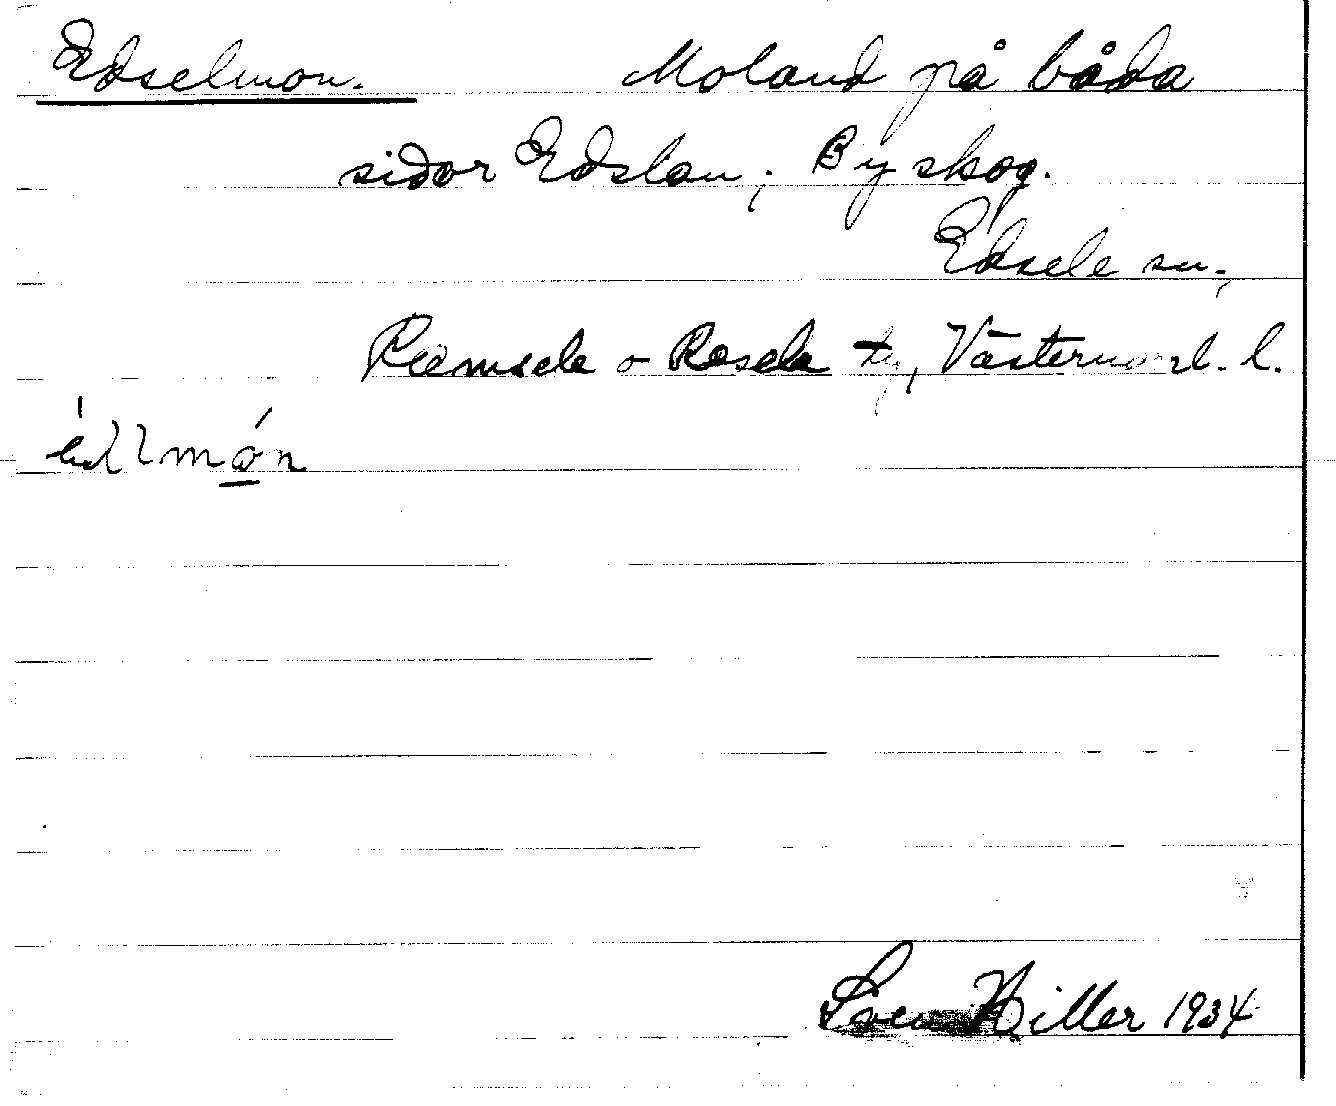 Edselmon. Moland på båda
sidor Edslan; By skog.
Edsele sn.,
Ramsele o Resele tg, Västernorrl. l.
Sven Hiller 1934